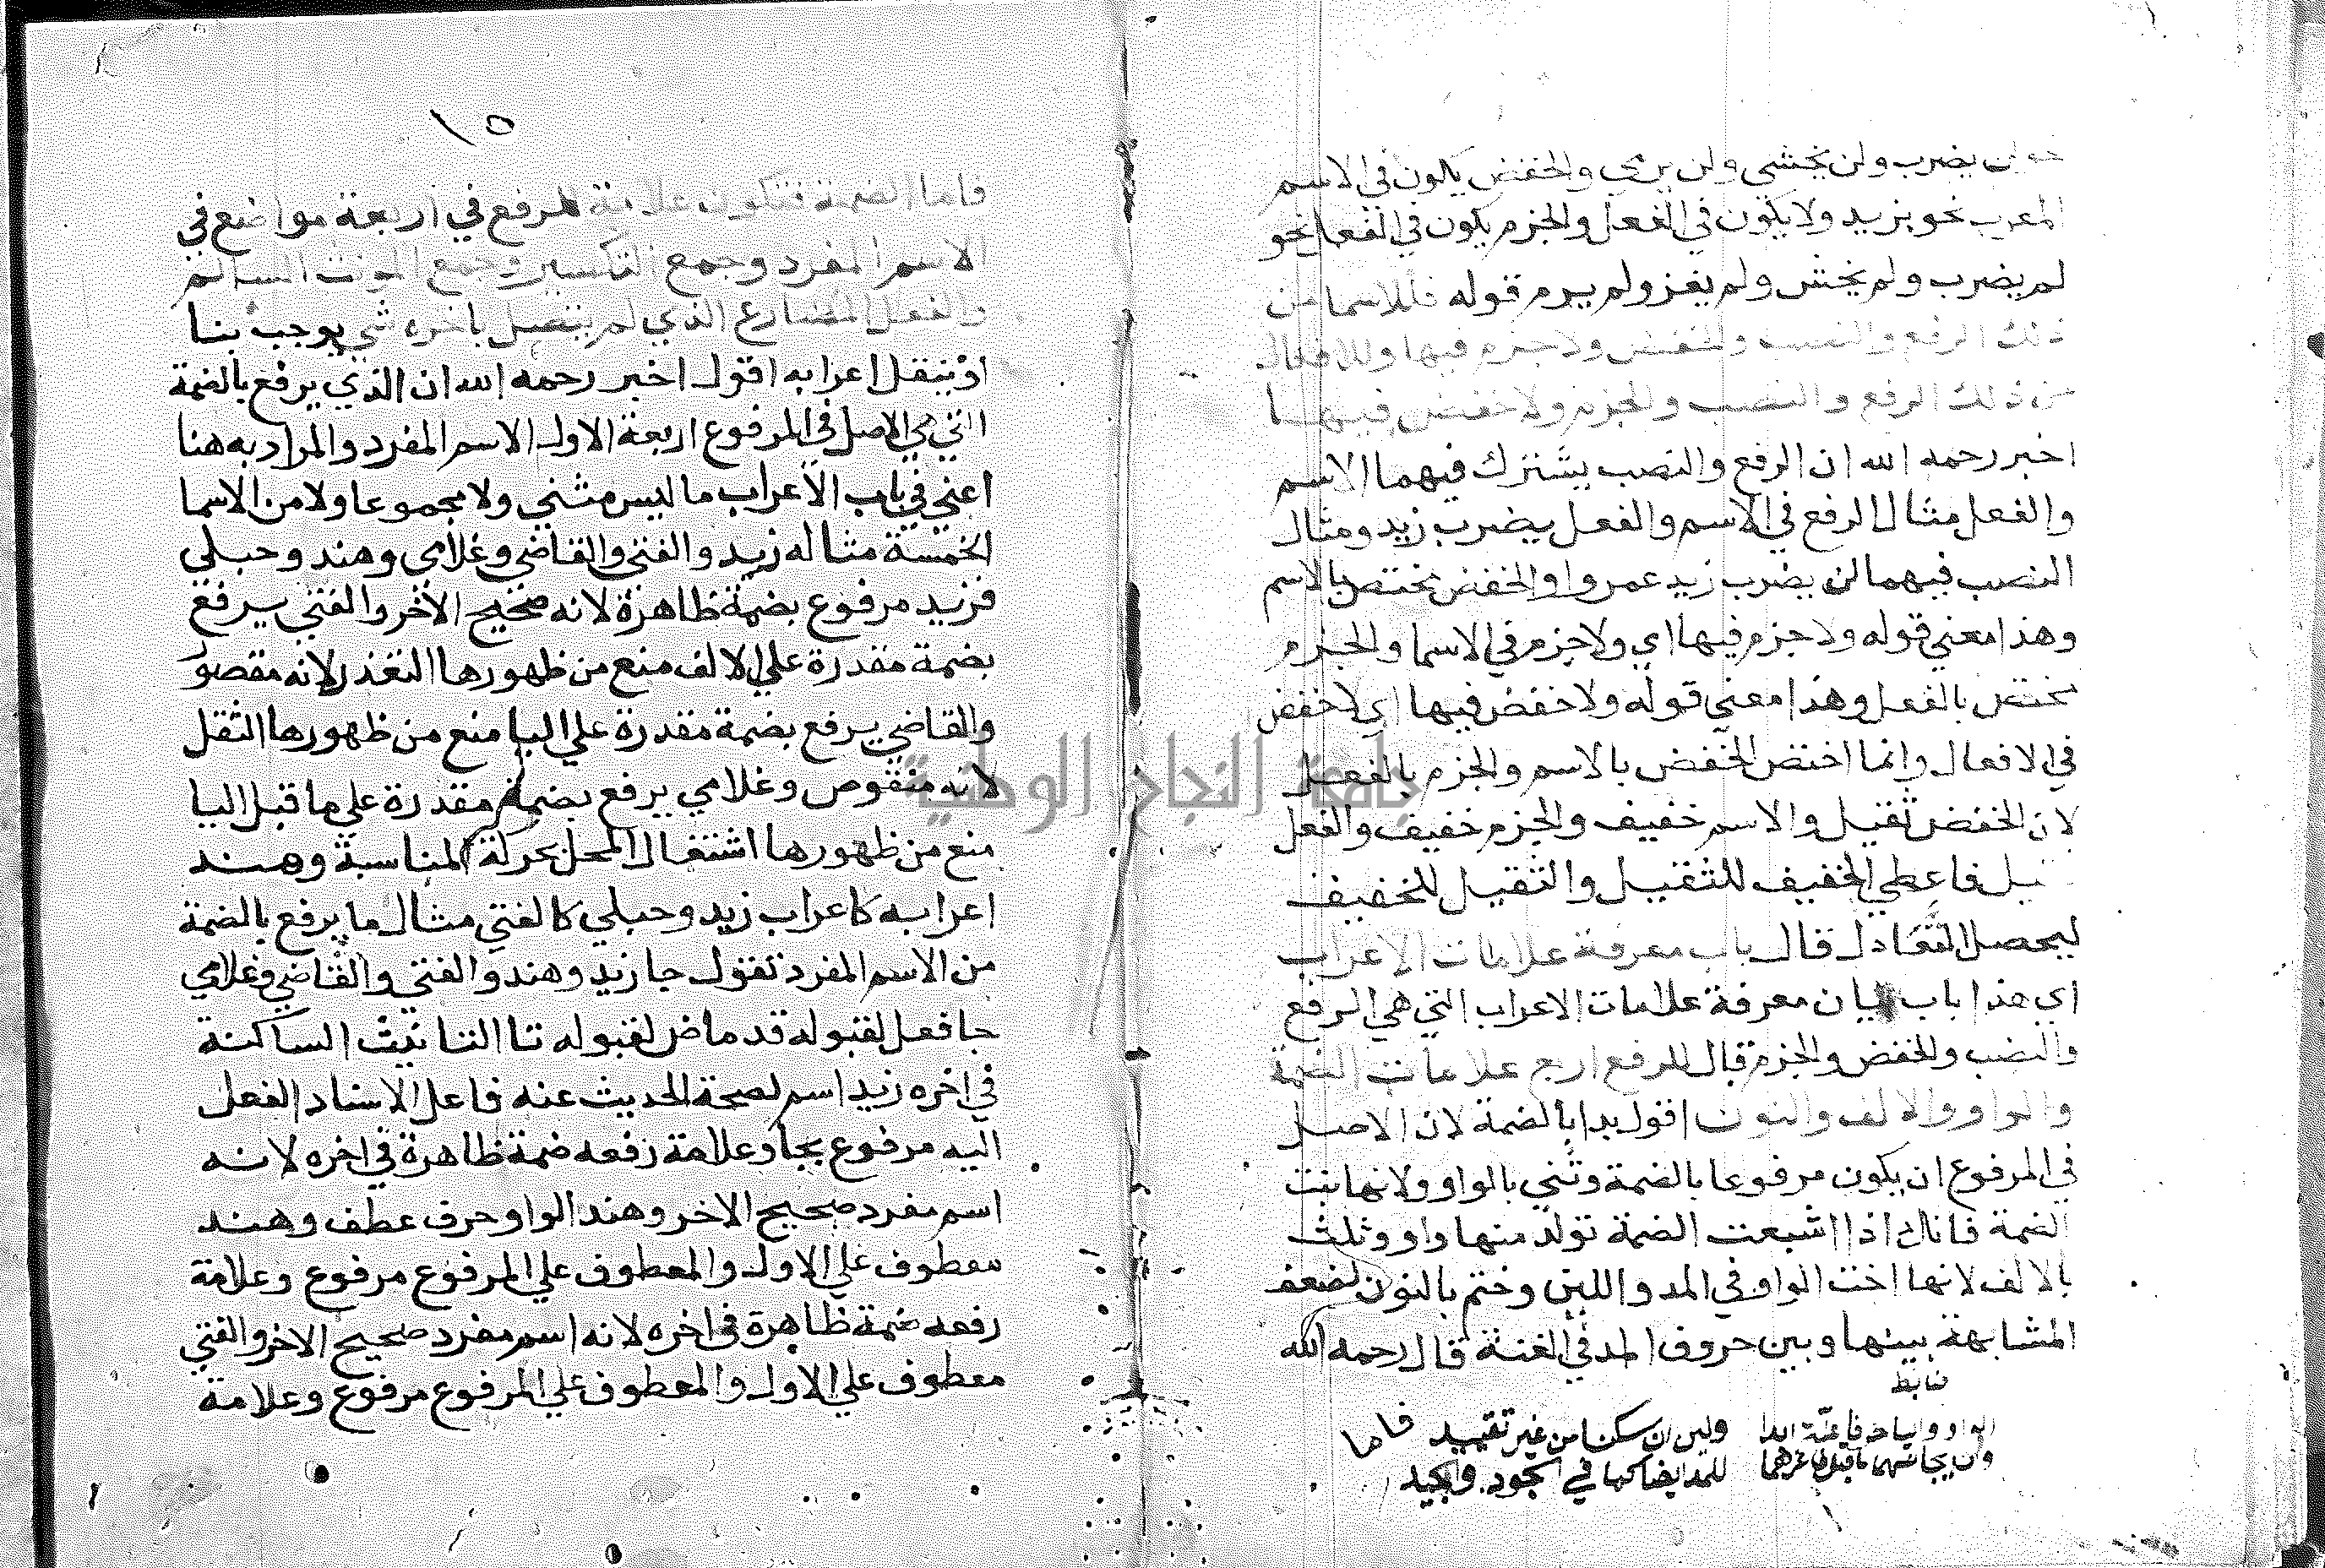 يضرب ولن يخشي ولن يرمي والخفض يكون في الاسم
المعرب نحو بزيد ولا يكون في الفعل والجزم يكون في الفعل نحو
لم يضرب ولم يخش ولم يغز ولم يرم قوله فللاسما من
ذلك الرفع والنصب والخفض ولا جزم فيها وللافعال
من ذلك الرفع والنصب والجزم ولا خفض فيها
اخبر رحمه الله ان الرفع والنصب يشترك فيهما الاسم
والفعل مثال الرفع في الاسم والفعل يضرب زيد ومثال
النصب فيهما لن يضرب زيد عمروا والخفض مختص بالاسم
وهذا معني قوله ولا جزم فيها اي ولا جزم في الاسما والجزم
مختص بالفعل وهذا معني قوله ولا خفض فيها اي لا خفض
في الافعال وانما اختص الخفض بالاسم والجزم بالفعل
لان الخفض ثقيل والاسم خفيف والجزم خفيف والفعل
فاعطي الخفيف للثقيل والثقيل للخفيف
ليحصل التعادل قال باب معرفة علامات الاعراب
اي هذا باب بيان معرفة علامات الاعراب التي هي الرفع
والنصب والخفض والجزم قال للرفع اربع علامات الضمة
والواو والالف والنون اقول بدا بالضمة لان الاصل
في المرفوع ان يكون مرفوعا بالضمة وثني بالواو ولانها بنت
الضمة فانك اذا اشبعت الضمة تولد منها واو وثلث
بالالف لانها اخت الواو في المد واللين وختم بالنون لضعف
المشابهة بينها وبين حروف المد في الغنة قال رحمه الله
ضابط
الواو واليا ابدا ولين ان سكنا من غير تقييد
وان يجانسهما للمد ايضا كما في
فاما
١٥
فاما الضمة فتكون علامة للرفع في اربعة مواضع في
الاسم المفرد وجمع التكسير وجمع المونث السالم
والفعل المضارع الذي لم يتصل باخره شي يوجب بنا
او ينقل اعرابه اقول اخبر رحمه الله ان الذي يرفع بالضمة
التي هي الاصل في المرفوع اربعة الاول الاسم المفرد والمراد به هنا
اعني في باب الاعراب ما ليس مثني ولا مجموعا ولا من الاسما
الخمسة مثاله زيد والفتي والقاضي وغلامي وهند وحبلي
فزيد مرفوع بضمة ظاهرة لانه صحيح الاخر والفتي يرفع
بضمة مقدرة علي الالف منع من ظهورها التعذر لانه مقصور
والقاضي يرفع بضمة مقدرة علي اليا منع من ظهورها الثقل
لانه منقوص وغلامي يرفع بضمة مقدرة علي ما قبل اليا
منع من ظهورها اشتغال المحل بحركة المناسبة وهند
اعرابه كاعراب زيد وحبلي كالفتي مثال ما يرفع بالضمة
من الاسم المفرد تقول جا زيد وهند والفتي والقاضي وغلامي
جا فعل لقبوله قد ماض لقبوله تا التانيث الساكنة
في اخره زيد اسم لصحة الحديث عنه فاعل لاسناد الفعل
اليه مرفوع بجا وعلامة رفعه ضمة ظاهرة في اخره لانه
اسم مفرد صحيح الاخر وهند الواو حرف عطف وهند
معطوف علي الاول والمعطوف علي المرفوع مرفوع وعلامة
رفعه ضمة ظاهرة في اخره لانه اسم مفرد صحيح الاخر والفتي
معطوف علي الاول والمعطوف علي المرفوع مرفوع وعلامة
جامعة النجاح الوطنية